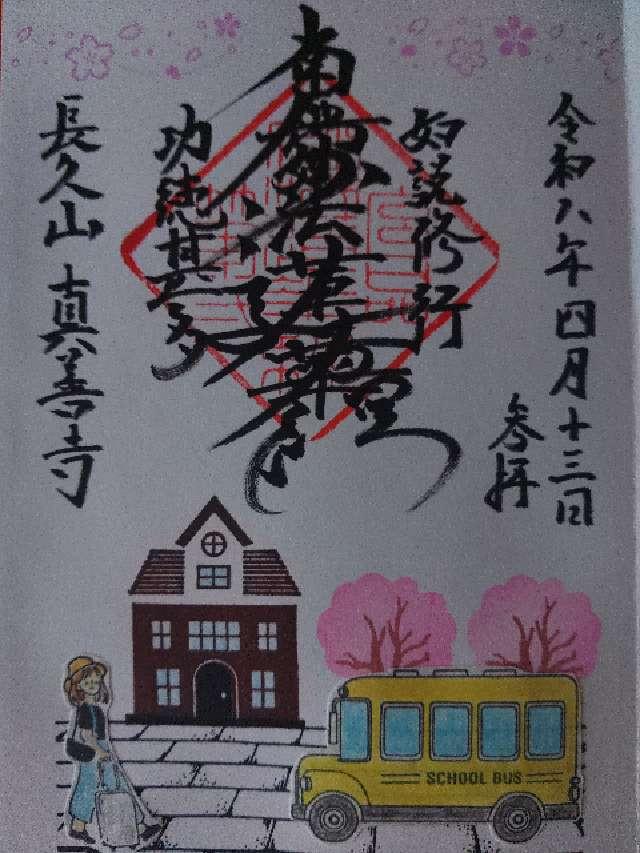 令和八年四月十三日
参拝
如説修行
南無妙法蓮華経
功徳甚多
長久山 真善寺
SCHOOL BUS